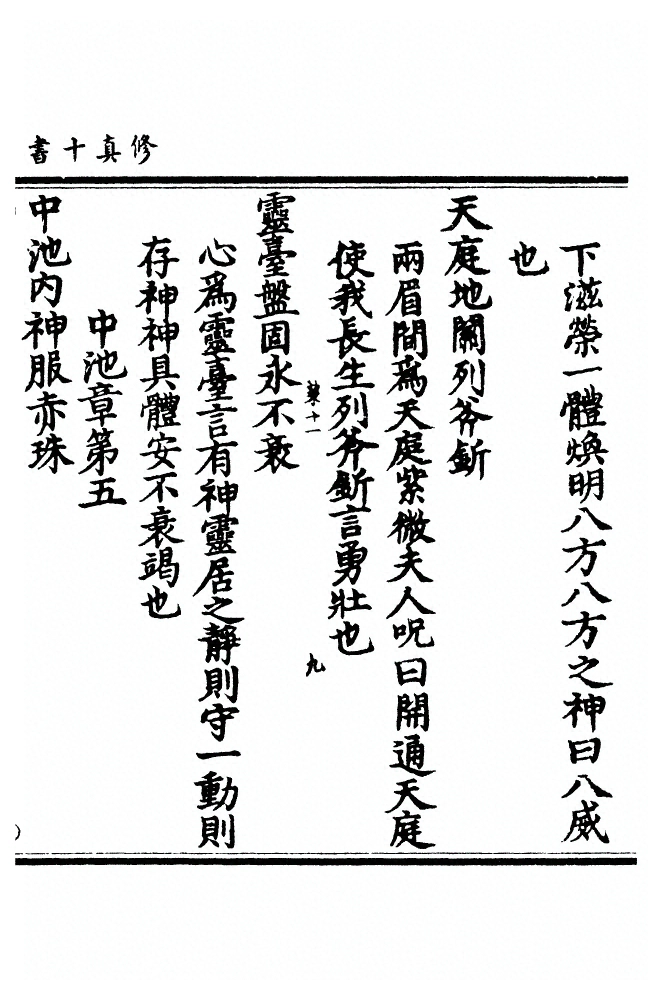 修真十書
下滋榮一體煥明八方八方之神曰八威
也
天庭地關列斧釿
兩眉間為天庭紫微夫人呪曰開通天庭
使我長生列斧釿言勇壯也
九
靈臺盤固永不衰
心為靈臺言有神靈居之靜則守一動則
存神神具體安不衰竭也
中池章第五
中池內神服赤珠